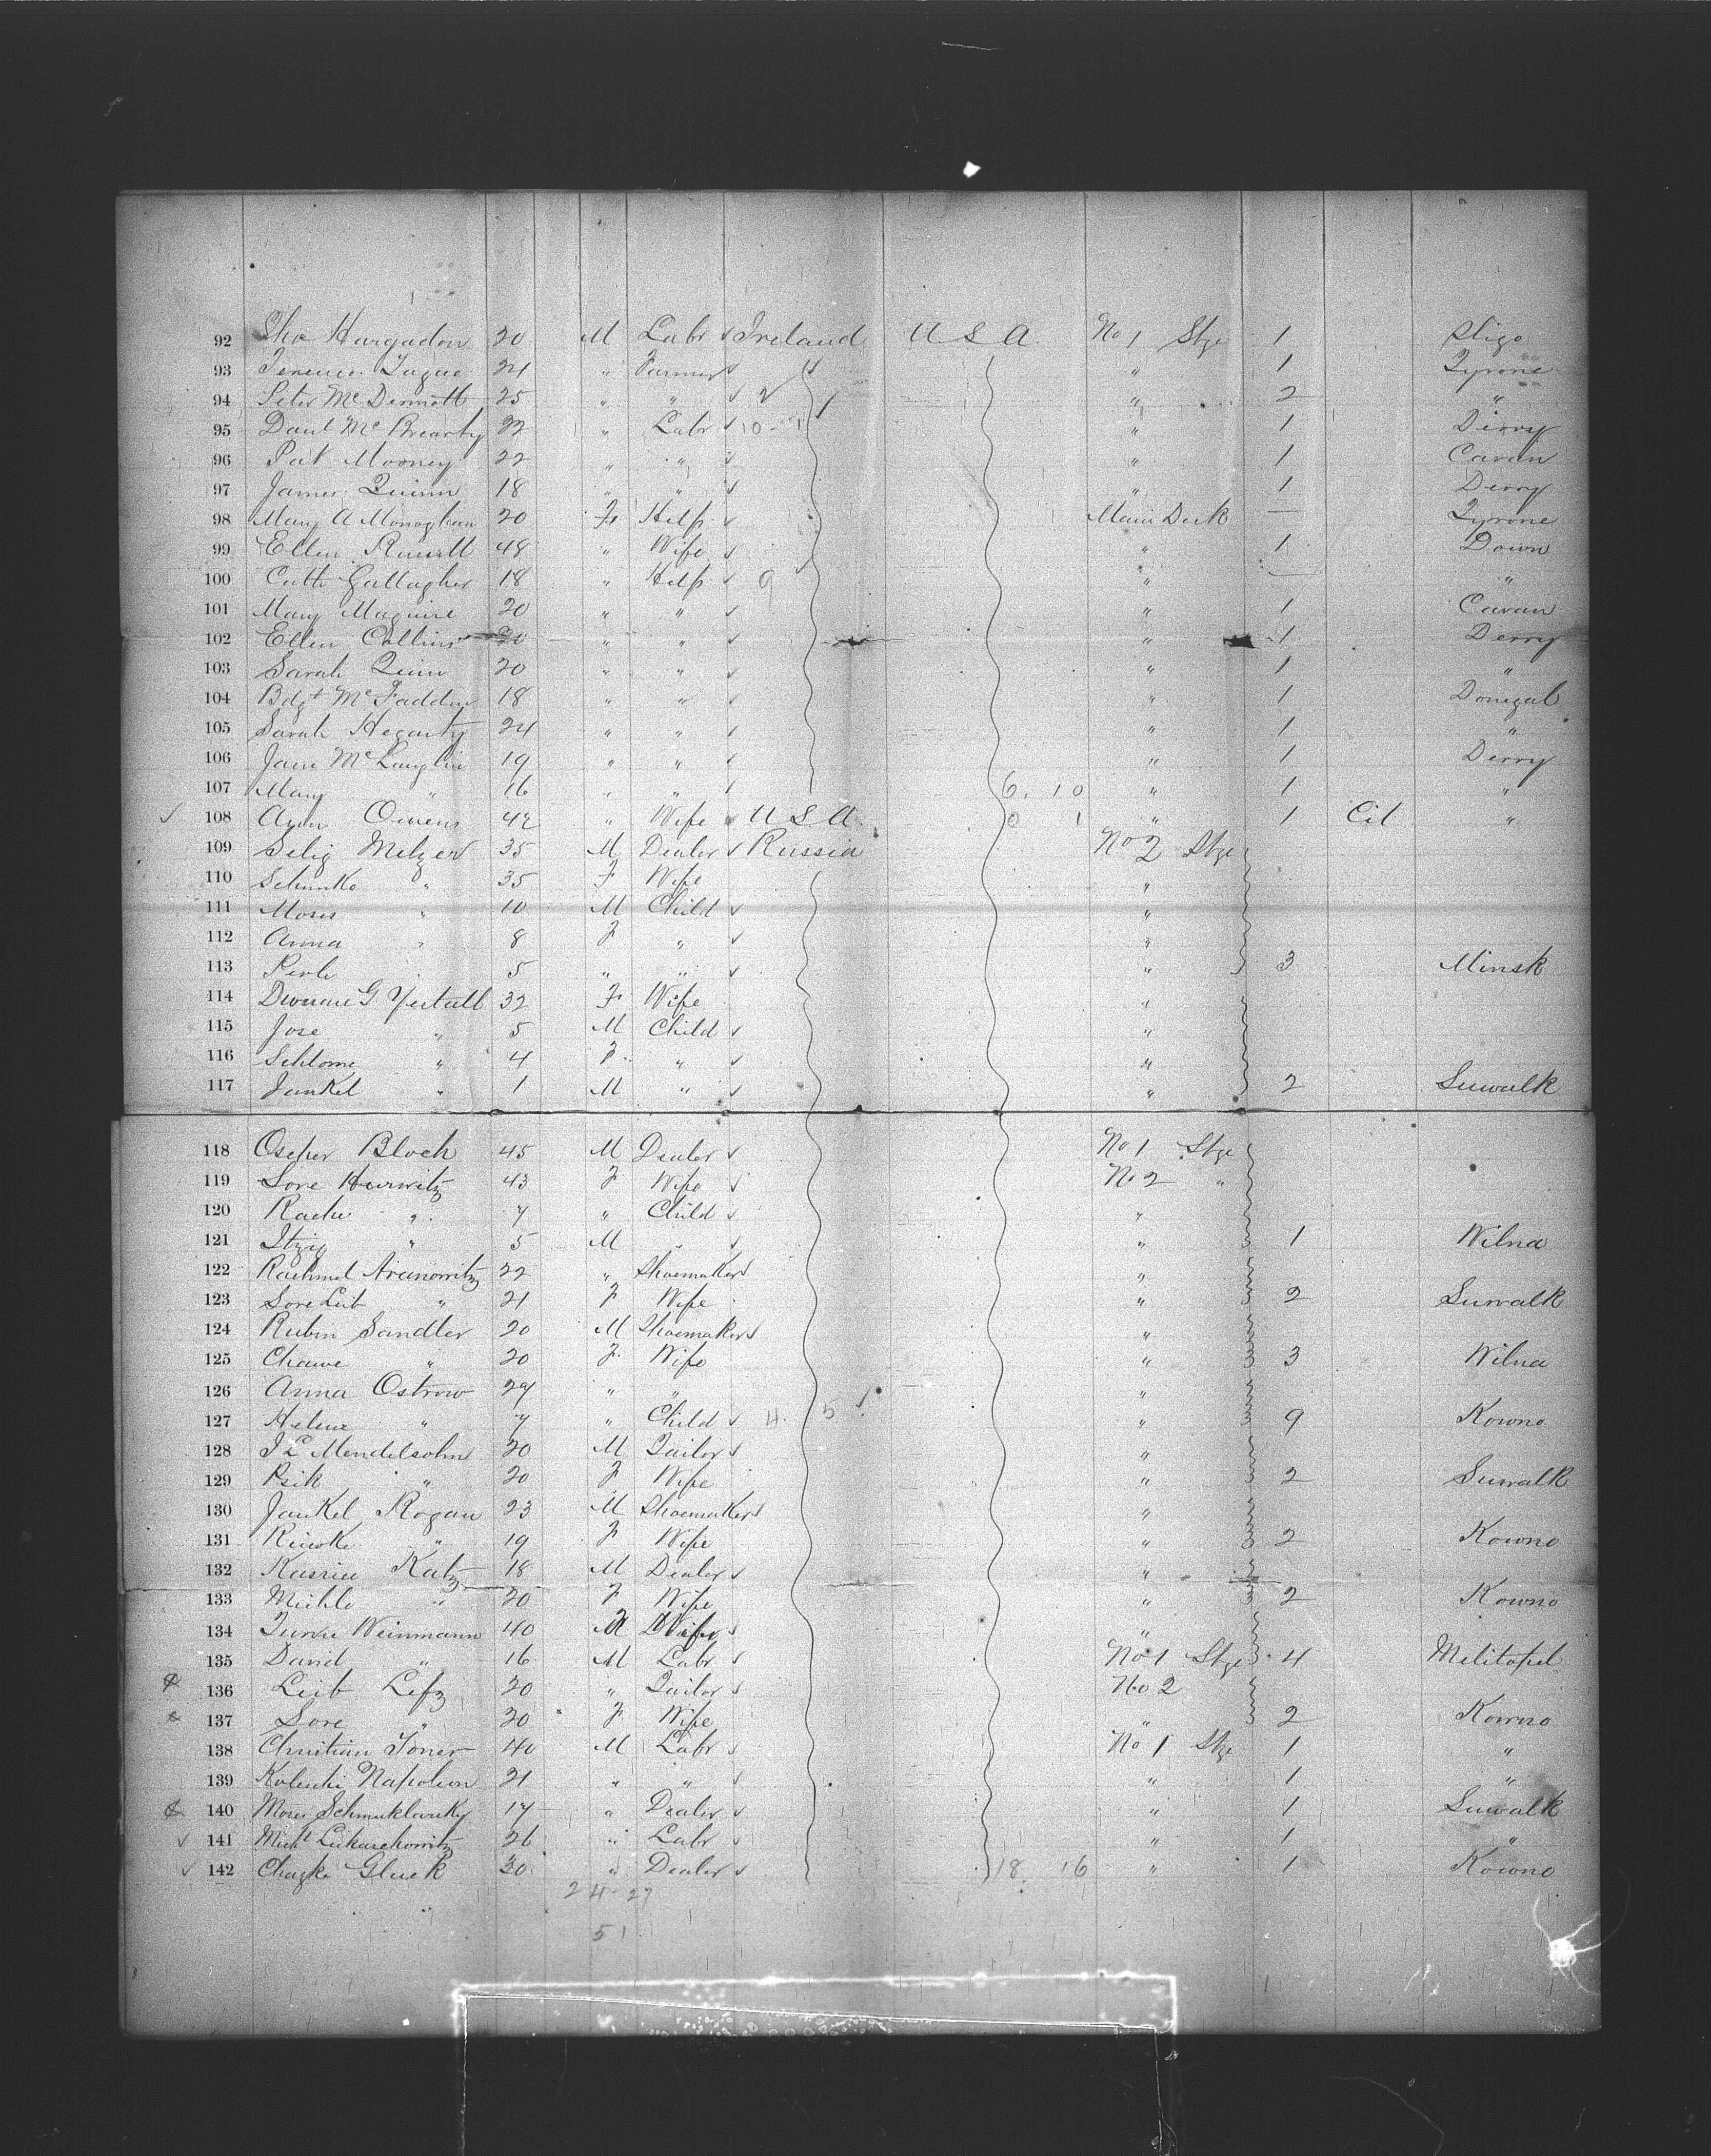 92 Hargadon 20 M Labr Ireland U S A No 1 Stge 1 Sligo
93 Terence Tague 24 " Farmer " 1 Tyrone
94 Peter McDermott 25 " " " 2 "
95 Danl McBrearty 22 " Labr 10 - 1 " 1 Derry
96 Pat Mooney 22 " " " 1 Cavan
97 James Quinn 18 " " " 1 Derry
98 Mary A Monaghan 20 F Help Main Deck — Tyrone
99 Ellen Russell 48 " Wife " 1 Down
100 Cath Gallagher 18 " Help 9 " — "
101 Mary Maguire 20 " " " 1 Cavan
102 Ellen Collins 20 " " " 1 Derry
103 Sarah Quinn 20 " " " 1 "
104 Bdgt McFadden 18 " " " 1 Donegal
105 Sarah Hegarty 24 " " " 1 "
106 Jane McLauglin 19 " " " 1 Derry
107 Mary " 16 " " 6. 10 " 1 "
108 Ann Owens 42 " Wife U S A 0 1 " 1 Cit "
109 Selig Melzer 35 M Dealer Russia No 2 Stge
110 " 35 F Wife "
111 Moses " 10 M Child "
112 Anna " 8 F " "
113 5 " " " 3 Minsk
114 32 F Wife "
115 Jose " 5 M Child "
116 Schlome " 4 F " "
117 Jankel " 1 M " " 2 Suwalk
118 Bloch 45 M Dealer No 1 Stge
119 Sore Hurwitz 43 F Wife No 2 "
120 " 7 " Child "
121 Itzig " 5 M " " 1 Wilna
122 Rachmel Aranowitz 22 " Shoemaker "
123 Sore Leib " 21 F Wife " 2 Suwalk
124 Rubin Sandler 20 M Shoemaker "
125 Chawe " 20 F Wife " 3 Wilna
126 Anna Ostrow 27 " " "
127 Helene " 7 " Child 4. 5 " 9 Kowno
128 Mendelsohn 20 M Tailor "
129 " 20 F Wife " 2 Suwalk
130 Jankel Rogan 23 M Shoemaker "
131 " 19 F Wife " 2 Kowno
132 Katz 18 M Dealer "
133 Michle " 20 F Wife " 2 Kowno
134 Weinmann 40 F Wife "
135 David " 16 M Labr No 1 Stge 4 Melitopol
136 Leib 20 " Tailor No 2
137 Sore " 20 F Wife " 2 Kowno
138 Christian 40 M Labr No 1 Stge 1 "
139 Napoleon 21 " " " 1 "
140 Moses 17 " Dealer " 1 Suwalk
141 26 " Labr " 1 "
142 Gluck 30 " Dealer 18. 16 " 1 Kowno
24 - 27
51